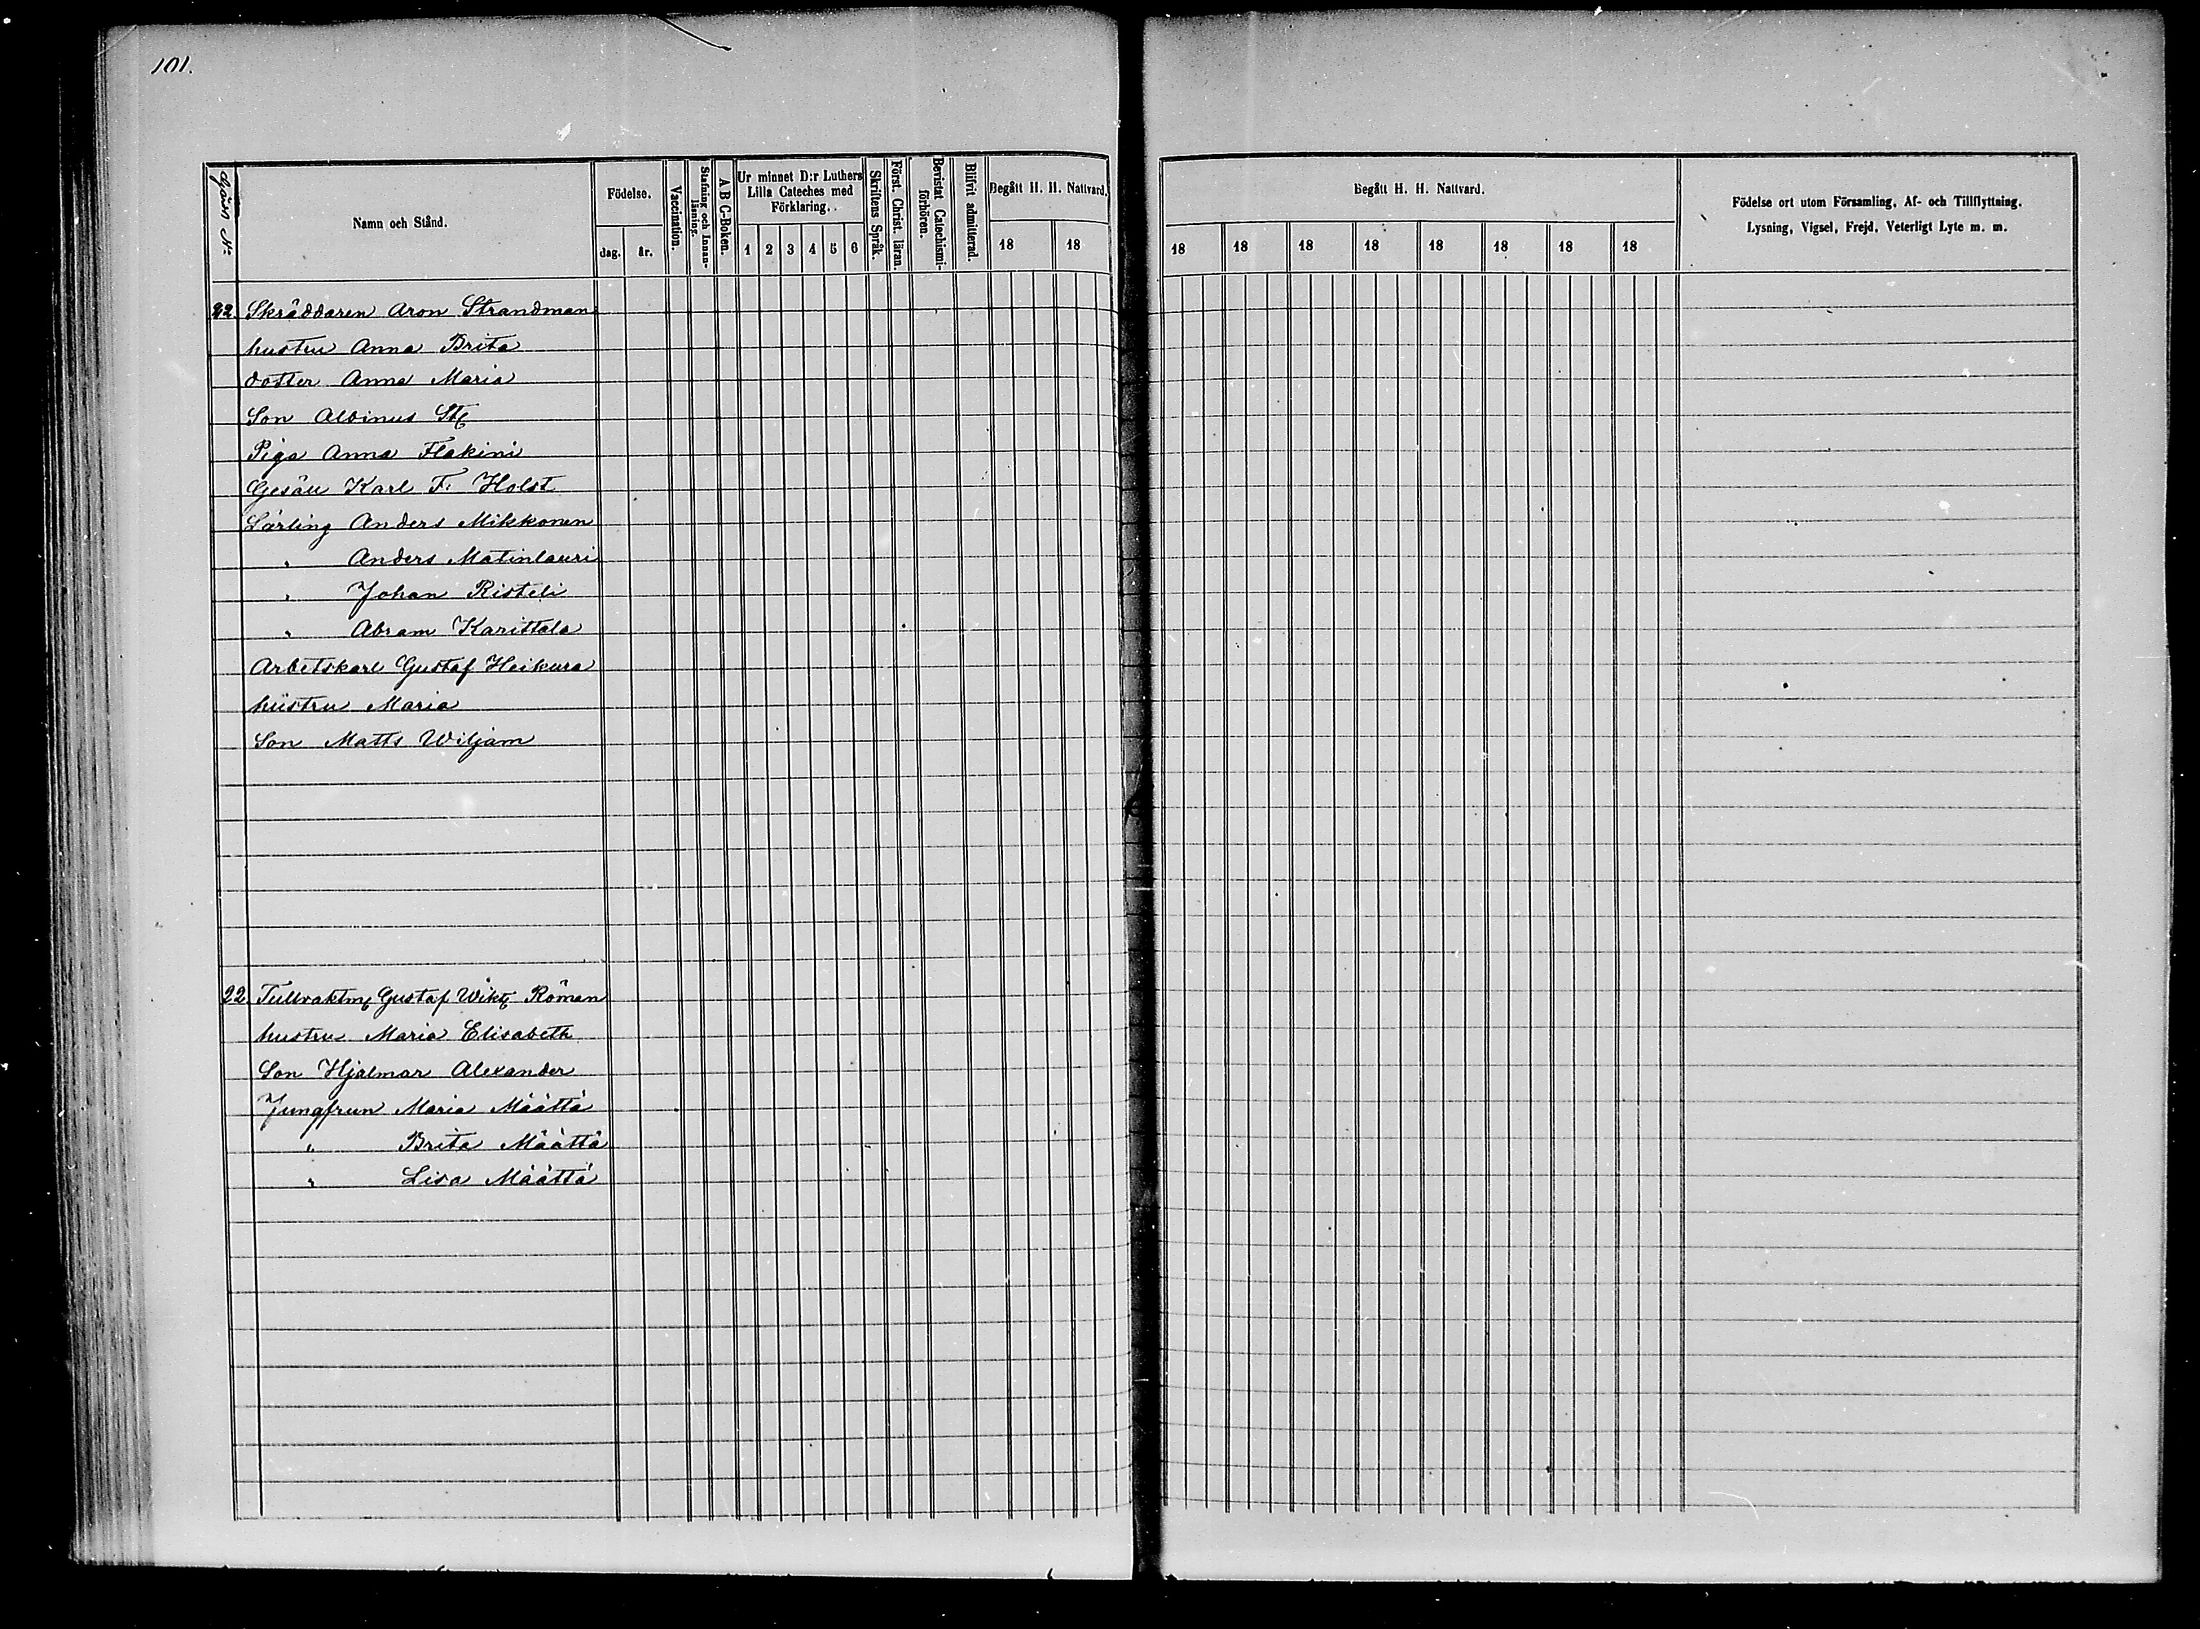 101.
Gård No
Namn och Stånd.
Födelse.
dag.
år.
Vaccination.
Stafning och Innan-
läsning.
A B C-Boken.
Ur minnet D:r Luthers
Lilla Cateches med
Förklaring.
1 2 3 4 5 6
Skriftens Språk.
Först. Christ. läran.
Bevistat Catechismi-
förhören.
Blifvit admitterad.
Begått H. H. Nattvard.
18 18
Begått H. H. Nattvard.
18 18 18 18 18 18 18 18
Födelse ort utom Församling, Af- och Tillflyttning.
Lysning, Vigsel, Frejd, Veterligt Lyte m. m.
22 Skräddaren Aron Strandman
hustru Anna Brita
dotter Anna Maria
Son Albinus
Piga Anna Flakini
Gesäll Karl F. Holst
Lärling Anders Mikkonen
" Anders Matinlauri
" Johan Risteli
" Abram Karittala
Arbetskarl Gustaf Heikura
hustru Maria
Son Matts Wiljam
22 Tullvaktm Gustaf Wikt Röman
hustru Maria Elisabeth
Son Hjalmar Alexander
Jungfrun Maria Määttä
" Brita Määttä
" Lisa Määttä